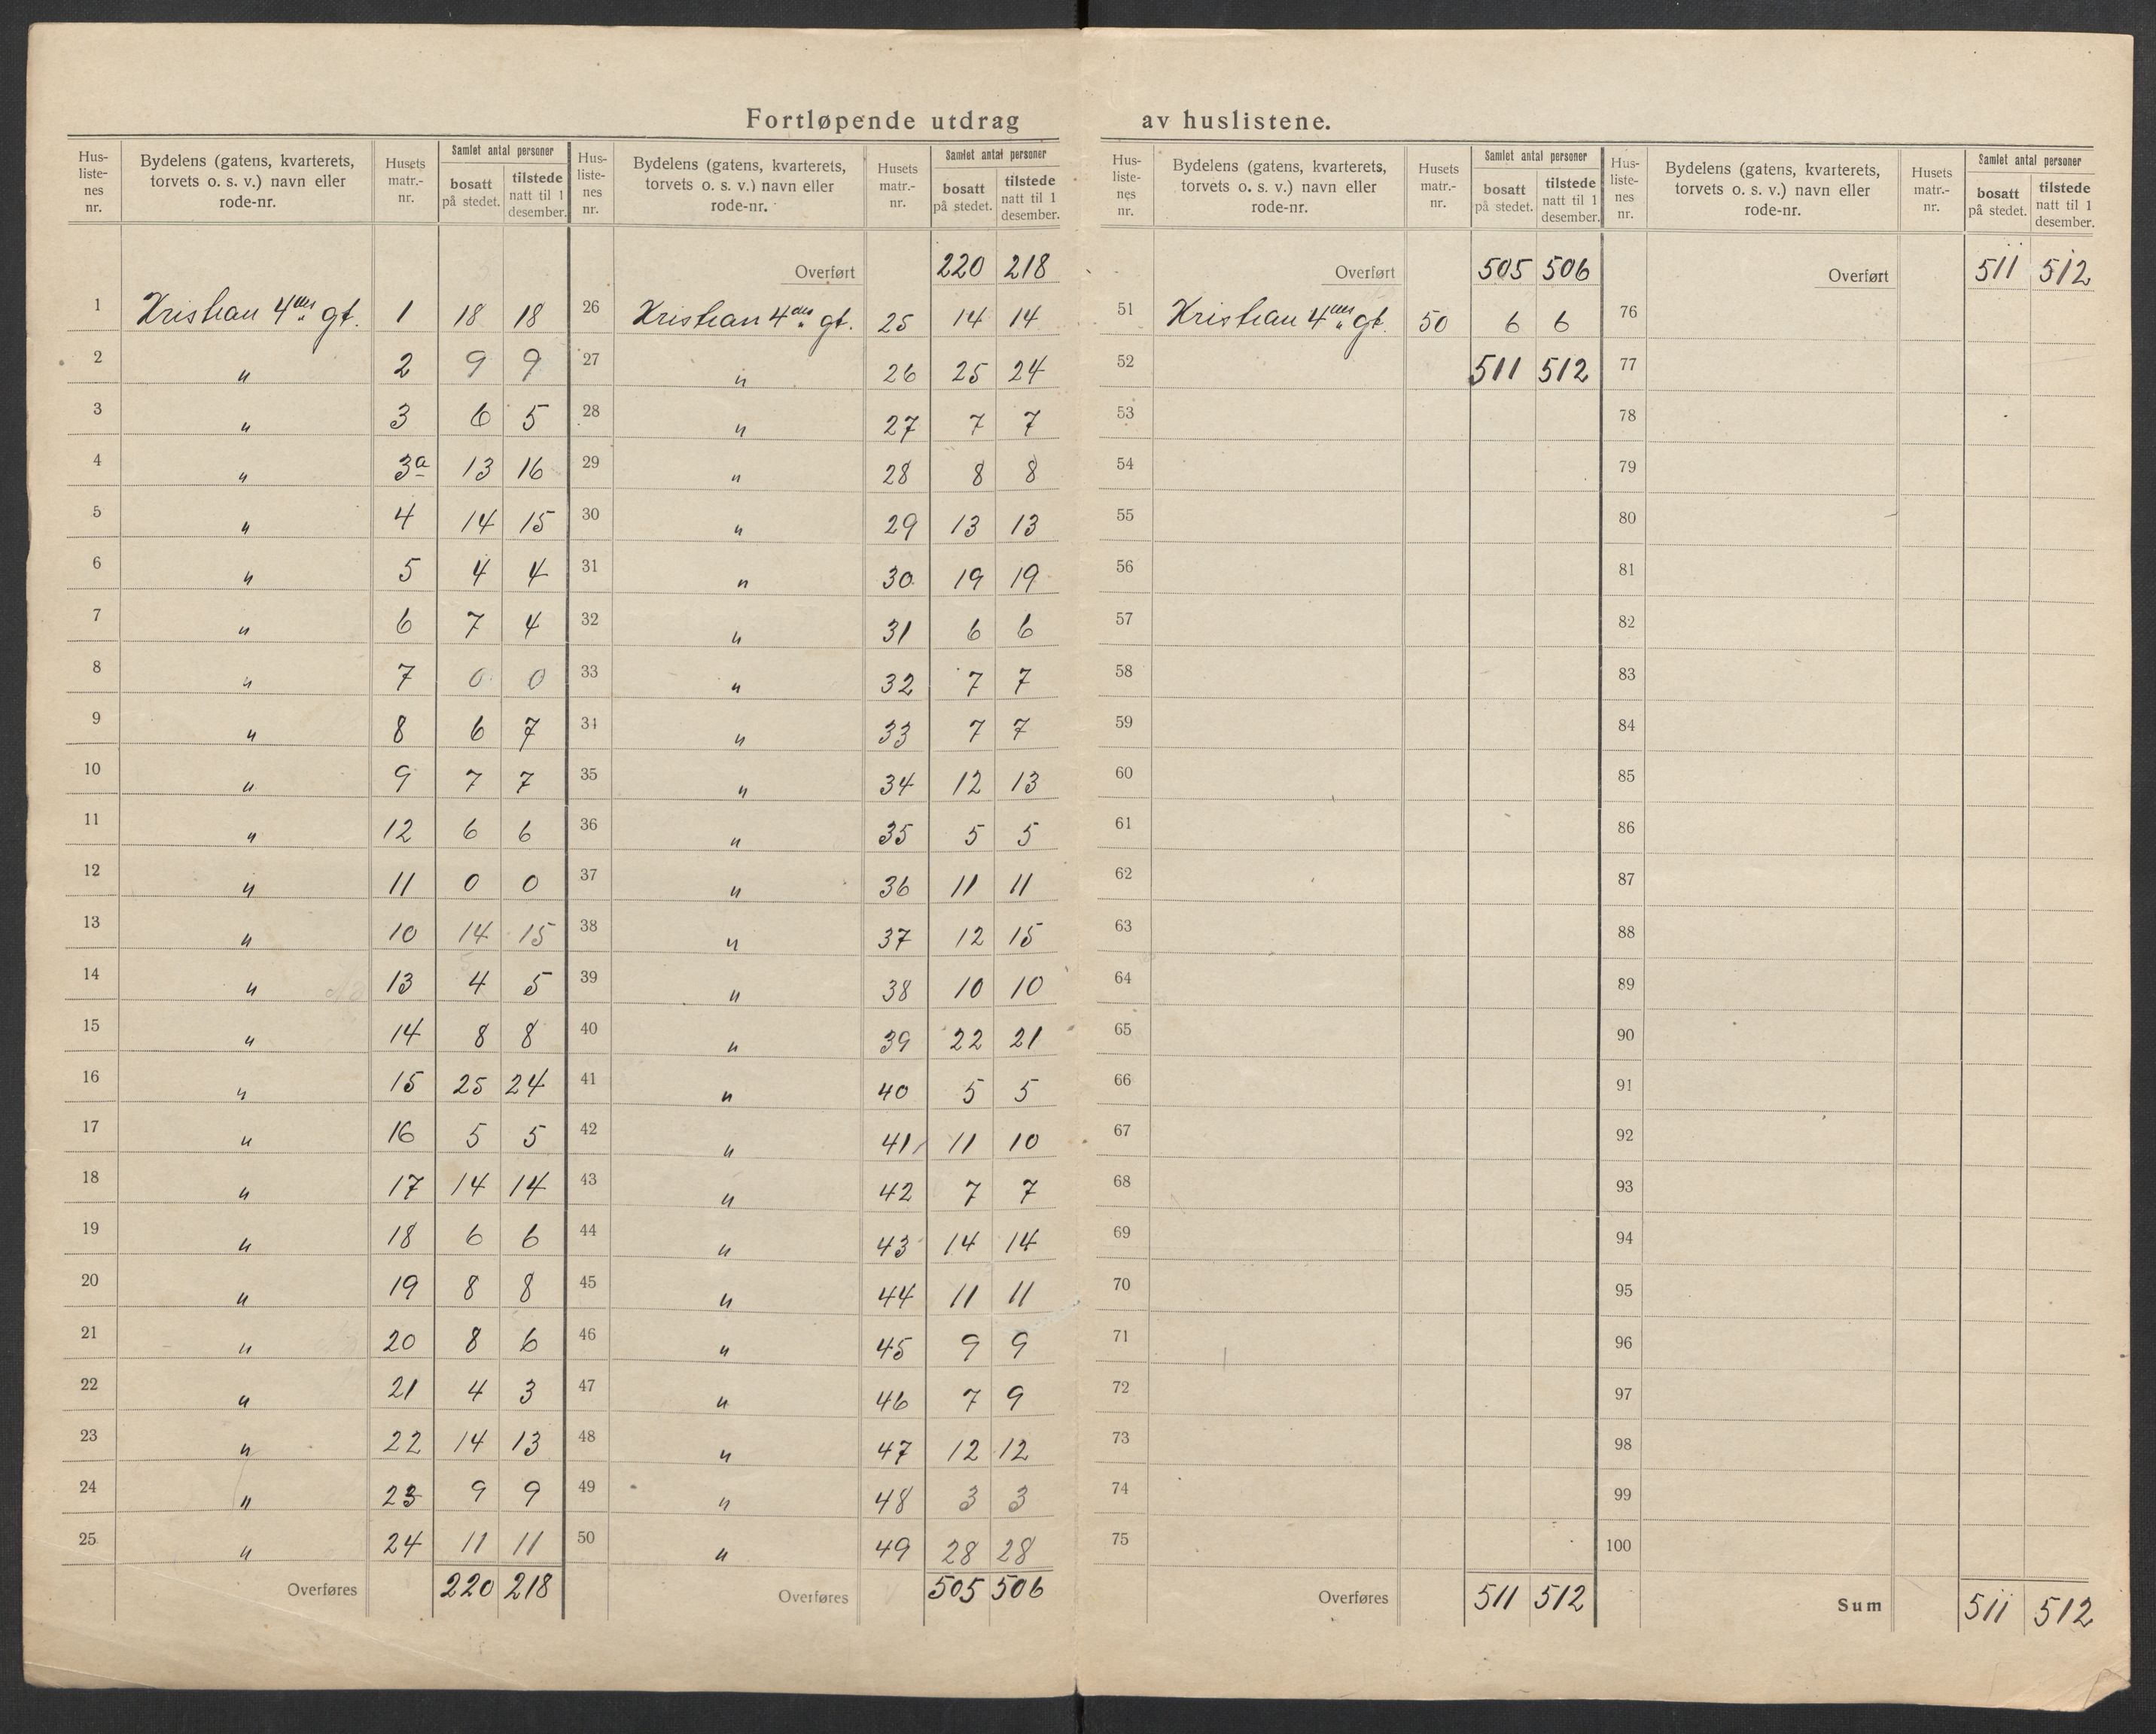 Fortløpende utdrag av huslistene.
Hus-listenes nr. | Bydelens (gatens, kvarterets, torvets o. s. v.) navn eller rode-nr. | Husets matr.-nr. | Samlet antal personer bosatt på stedet. | tilstede natt til 1 desember.
1 Kristian 4des gt. 1 18 18
2 " 2 9 9
3 " 3 6 5
4 " 3a 13 16
5 " 4 14 15
6 " 5 4 4
7 " 6 7 4
8 " 7 0 0
9 " 8 6 7
10 " 9 7 7
11 " 12 6 6
12 " 11 0 0
13 " 10 14 15
14 " 13 4 5
15 " 14 8 8
16 " 15 25 24
17 " 16 5 5
18 " 17 14 14
19 " 18 6 6
20 " 19 8 8
21 " 20 8 6
22 " 21 4 3
23 " 22 14 13
24 " 23 9 9
25 " 24 11 11
Overføres 220 218
Hus-listenes nr. | Bydelens (gatens, kvarterets, torvets o. s. v.) navn eller rode-nr. | Husets matr.-nr. | Samlet antal personer bosatt på stedet. | tilstede natt til 1 desember.
Overført 220 218
26 Kristian 4des gt. 25 14 14
27 " 26 25 24
28 " 27 7 7
29 " 28 8 8
30 " 29 13 13
31 " 30 19 19
32 " 31 6 6
33 " 32 7 7
34 " 33 7 7
35 " 34 12 13
36 " 35 5 5
37 " 36 11 11
38 " 37 12 15
39 " 38 10 10
40 " 39 22 21
41 " 40 5 5
42 " 41 11 10
43 " 42 7 7
44 " 43 14 14
45 " 44 11 11
46 " 45 9 9
47 " 46 7 9
48 " 47 12 12
49 " 48 3 3
50 " 49 28 28
Overføres 505 506
Hus-listenes nr. | Bydelens (gatens, kvarterets, torvets o. s. v.) navn eller rode-nr. | Husets matr.-nr. | Samlet antal personer bosatt på stedet. | tilstede natt til 1 desember.
Overført 505 506
51 Kristian 4des gt. 50 6 6
52 511 512
53
54
55
56
57
58
59
60
61
62
63
64
65
66
67
68
69
70
71
72
73
74
75
Overføres 511 512
Hus-listenes nr. | Bydelens (gatens, kvarterets, torvets o. s. v.) navn eller rode-nr. | Husets matr.-nr. | Samlet antal personer bosatt på stedet. | tilstede natt til 1 desember.
Overført 511 512
76
77
78
79
80
81
82
83
84
85
86
87
88
89
90
91
92
93
94
95
96
97
98
99
100
Sum 511 512